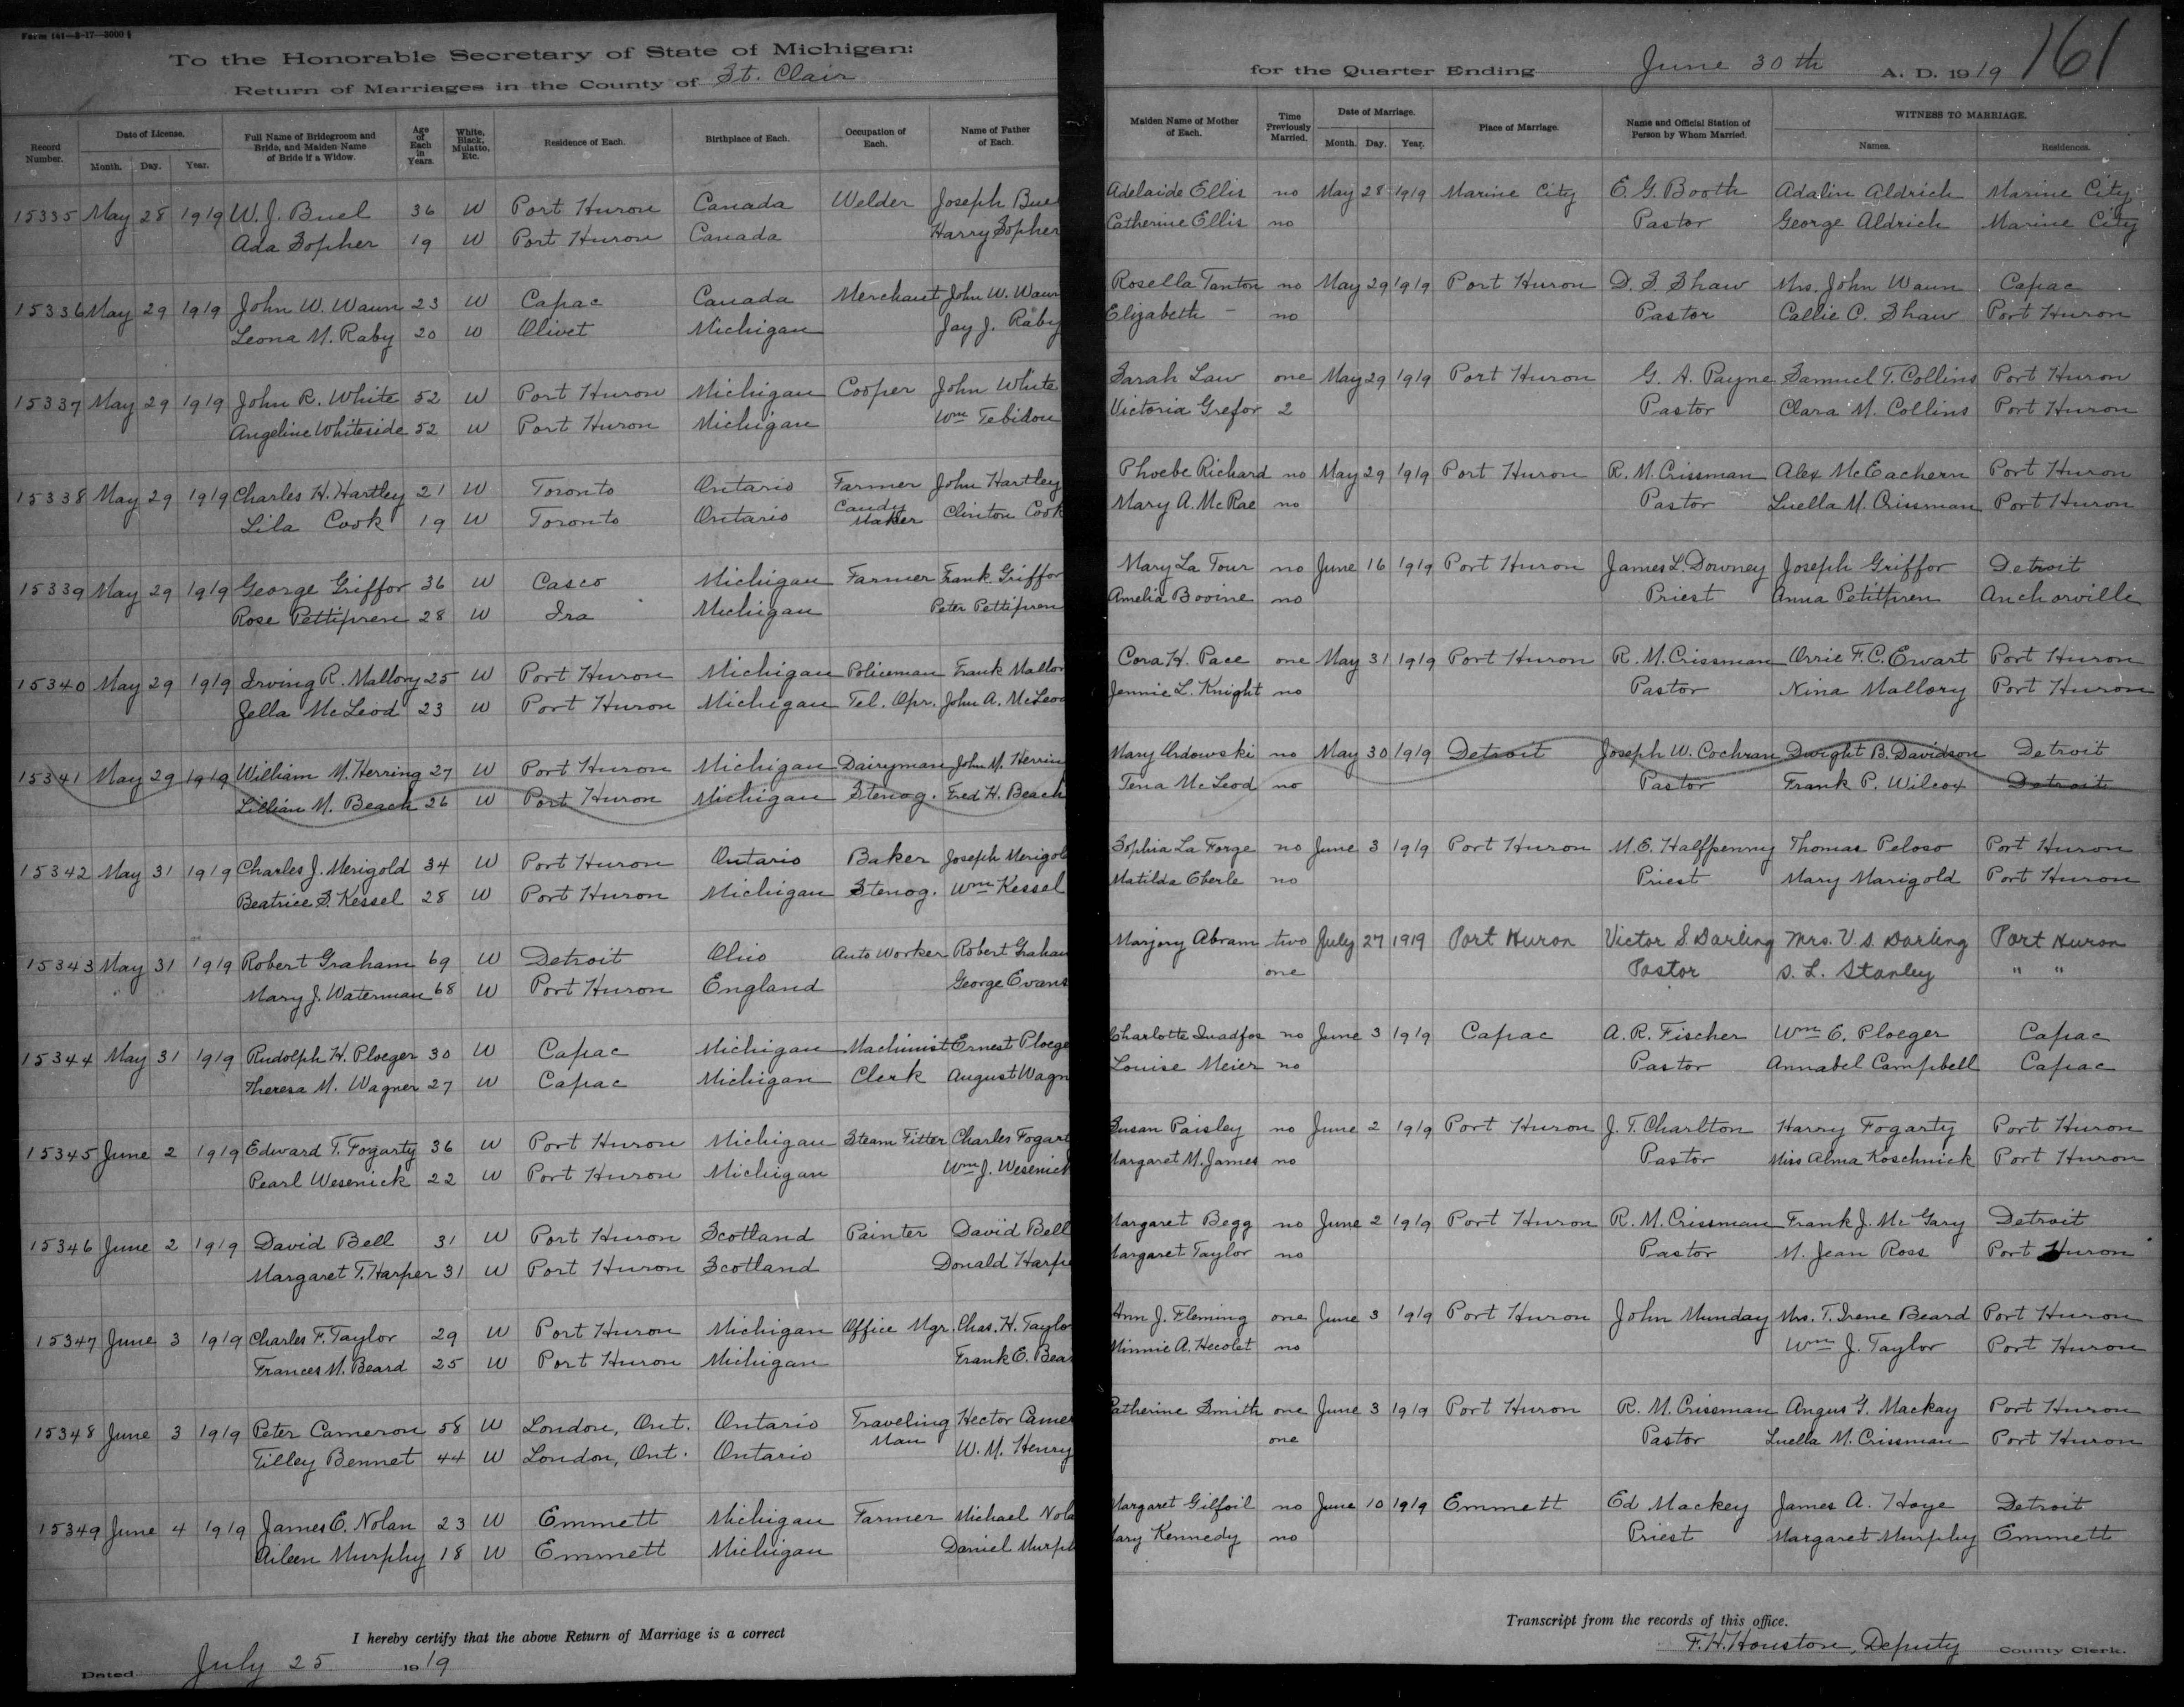 Form 141—3-17—3000
To the Honorable Secretary of State of Michigan:
Return of Marriages in the County of St. Clair
for the Quarter Ending June 30th A. D. 1919 161
Record Number. Date of License. Month. Day. Year. Full Name of Bridegroom and Bride, and Maiden Name of Bride if a Widow. Age of Each in Years. White, Black, Mulatto, Etc. Residence of Each. Birthplace of Each. Occupation of Each. Name of Father of Each. Maiden Name of Mother of Each. Time Previously Married. Date of Marriage. Month. Day. Year. Place of Marriage. Name and Official Station of Person by Whom Married. WITNESS TO MARRIAGE. Names. Residences.
15335 May 28 1919 W. J. Buel 36 W Port Huron Canada Welder Joseph Bue Adelaide Ellis no May 28 1919 Marine City E. G. Booth Adalin Aldrich Marine City
Ada Sopher 19 W Port Huron Canada Harry Sopher Catherine Ellis no Pastor George Aldrich Marine City
15336 May 29 1919 John W. Waun 23 W Capac Canada Merchant John W. Waun Rosella Tanton no May 29 1919 Port Huron D. S. Shaw Mrs. John Waun Capac
Leona M. Raby 20 W Olivet Michigan Jay J. Raby Elizabeth – no Pastor Callie C. Shaw Port Huron
15337 May 29 1919 John R. White 52 W Port Huron Michigan Cooper John White Sarah Law one May 29 1919 Port Huron G. A. Payne Samuel T. Collins Port Huron
Angeline Whiteside 52 W Port Huron Michigan Wm Tebidou Victoria Grefor 2 Pastor Clara M. Collins Port Huron
15338 May 29 1919 Charles H. Hartley 21 W Toronto Ontario Farmer John Hartley Phoebe Richard no May 29 1919 Port Huron R. M. Crissman Alex McEachern Port Huron
Lila Cook 19 W Toronto Ontario Candy Maker Clinton Cook Mary A. McRae no Pastor Luella M. Crissman Port Huron
15339 May 29 1919 George Griffor 36 W Casco Michigan Farmer Frank Griffor Mary La Tour no June 16 1919 Port Huron James L. Downey Joseph Griffor Detroit
Rose Pettipren 28 W Ira Michigan Peter Pettipren Amelia Bovine no Priest Anna Petitpren Anchorville
15340 May 29 1919 Irving R. Mallory 25 W Port Huron Michigan Policeman Frank Mallor Cora H. Pace one May 31 1919 Port Huron R. M. Crissman Orrie F. C. Ewart Port Huron
Jella McLeod 23 W Port Huron Michigan Tel. Opr. John A. McLeod Jennie L. Knight no Pastor Nina Mallory Port Huron
15341 May 29 1919 William M. Herring 27 W Port Huron Michigan Dairyman John M. Herrin Mary Ardowski no May 30 1919 Detroit Joseph W. Cochran Dwight B. Davidson Detroit
Lillian M. Beach 26 W Port Huron Michigan Stenog. Fred H. Beach Tena McLeod no Pastor Frank P. Wilcox Detroit
15342 May 31 1919 Charles J. Merigold 34 W Port Huron Ontario Baker Joseph Merigol Sophia La Forge no June 3 1919 Port Huron M. E. Halfpenny Thomas Peloso Port Huron
Beatrice S. Kessel 28 W Port Huron Michigan Stenog. Wm Kessel Matilda Eberle no Priest Mary Marigold Port Huron
15343 May 31 1919 Robert Graham 69 W Detroit Ohio Auto Worker Robert Graham Marjory Abram two July 27 1919 Port Huron Victor S. Darling Mrs. V. S. Darling Port Huron
Mary J. Waterman 68 W Port Huron England George Evans one Pastor S. L. Stanley " "
15344 May 31 1919 Rudolph H. Ploeger 30 W Capac Michigan Machinist Ernest Ploege Charlotte Quadfos no June 3 1919 Capac A. R. Fischer Wm E. Ploeger Capac
Theresa M. Wagner 27 W Capac Michigan Clerk August Wagn Louise Meier no Pastor Annabel Campbell Capac
15345 June 2 1919 Edward T. Fogarty 36 W Port Huron Michigan Steam Fitter Charles Fogart Susan Paisley no June 2 1919 Port Huron J. T. Charlton Harry Fogarty Port Huron
Pearl Wesenick 22 W Port Huron Michigan Wm J. Wesenick Margaret M. James no Pastor Miss Alma Koschnick Port Huron
15346 June 2 1919 David Bell 31 W Port Huron Scotland Painter David Bell Margaret Begg no June 2 1919 Port Huron R. M. Crissman Frank J. McGary Detroit
Margaret T. Harper 31 W Port Huron Scotland Donald Harpe Margaret Taylor no Pastor M. Jean Ross Port Huron
15347 June 3 1919 Charles F. Taylor 29 W Port Huron Michigan Office Mgr. Chas. H. Taylo Ann J. Fleming one June 3 1919 Port Huron John Munday Mrs. T. Irene Beard Port Huron
Frances M. Beard 25 W Port Huron Michigan Frank E. Bea Minnie A. Hecolet no Wm J. Taylor Port Huron
15348 June 3 1919 Peter Cameron 58 W London, Ont. Ontario Traveling Man Hector Came Catherine Smith one June 3 1919 Port Huron R. M. Crissman Angus G. Mackay Port Huron
Tilley Bennet 44 W London, Ont. Ontario W. M. Henry one Pastor Luella M. Crissman Port Huron
15349 June 4 1919 James E. Nolan 23 W Emmett Michigan Farmer Michael Nola Margaret Gilfoil no June 10 1919 Emmett Ed Mackey James A. Hoye Detroit
Aileen Murphy 18 W Emmett Michigan Daniel Murph Mary Kennedy no Priest Margaret Murphy Emmett
I hereby certify that the above Return of Marriage is a correct
Transcript from the records of this office.
Dated July 25 1919
F. H. Houston, Deputy County Clerk.